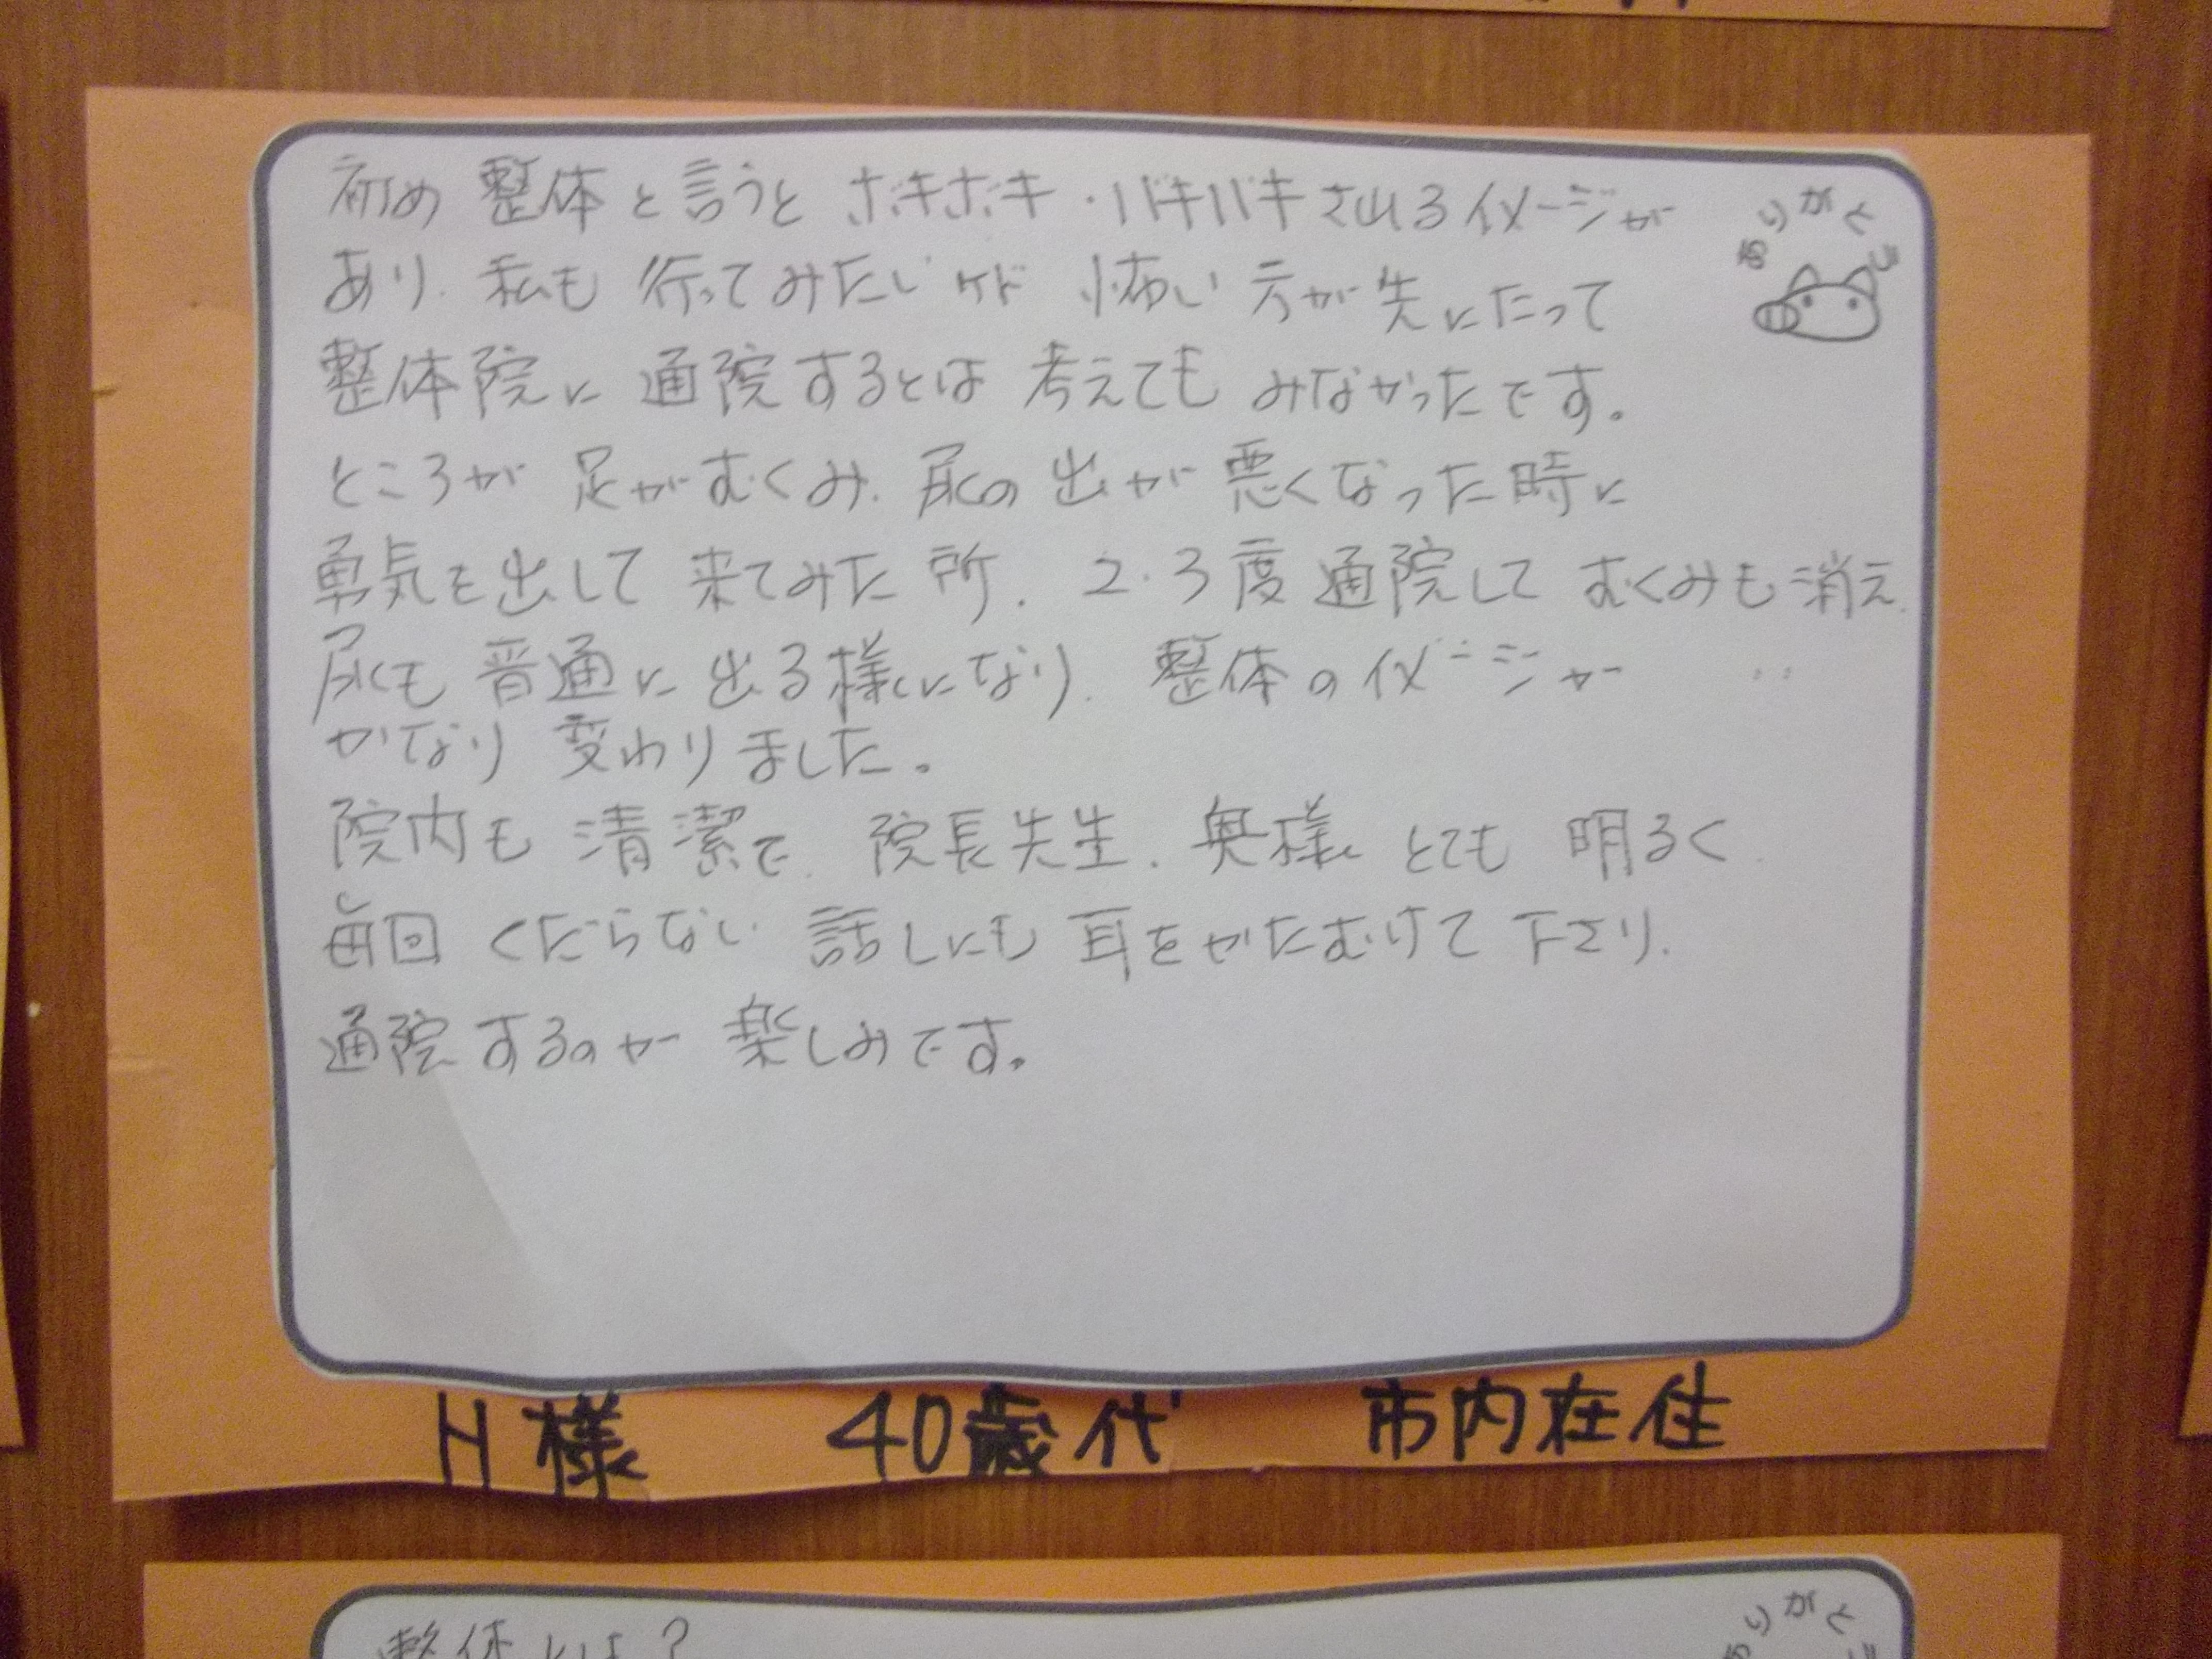 初め 整体と言うと ボキボキ・バキバキされるイメージが
あり、私も 行ってみたいケド 怖い方が先にたって
整体院に 通院するとは 考えても みなかったです。
ところが 足がむくみ、尿の出が悪くなった時に
勇気を出して 来てみた所、2・3度通院して むくみも消え、
尿も 普通に出る様になり、整体のイメージが
かなり 変わりました。
院内も 清潔で、院長先生、奥様 とても 明るく、
毎回 くだらない 話しにも 耳をかたむけて 下さり、
通院するのが 楽しみです。
ありがとう
H様 40歳代 市内在住
整体とは?
ありがと